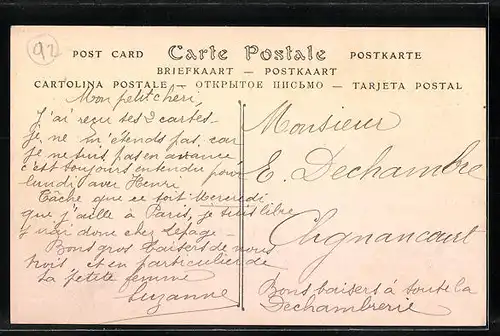 92
POST CARD Carte Postale POSTKARTE
BRIEFKAART — POSTKAART
CARTOLINA POSTALE — ОТКРЫТОЕ ПИСЬМО — TARJETA POSTAL
Mon petit cheri,
J'ai reçu tes 2 cartes -
je ne m'etends pas, car
je ne suis pas en avance
c'est toujours entendu pour
lundi avec Henri
Tâche que ce soit Mercredi
que j'aille à Paris, je suis libre
j'irai donc chez Lepage -
Bons gros baisers de nous
trois et en particulier de
ta petite femme
Suzanne
Monsieur
E. Dechambre
Clignancourt
Bons baisers à toute la
Dechambrerie